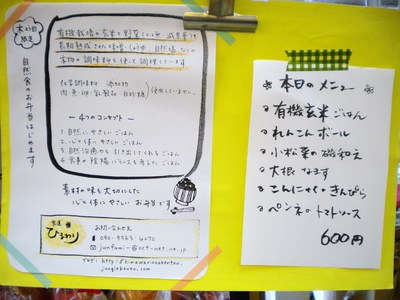 木の日
限定
自然食のお弁当はじめます
有機栽培の玄米と野菜
長期熟成された味噌・しょうゆ、自然塩などの
本物の調味料を使って調理しています
化学調味料・添加物
肉・魚・卵・乳製品・白砂糖
使用していません。
4つのコンセプト
1. 自然にやさしいごはん
2. 心や体にやさしいごはん
3. 自然治癒力を引き出してくれるごはん
4. 食事の陰陽バランスを考えたごはん
素材の味を大切にした
心や体にやさしいお弁当です
ひまわり
お問い合わせ
junglebento.com
※本日のメニュー※
有機玄米ごはん
れんこんボール
小松菜の磯和え
大根なます
こんにゃくのきんぴら
ペンネ・トマトソース
600円